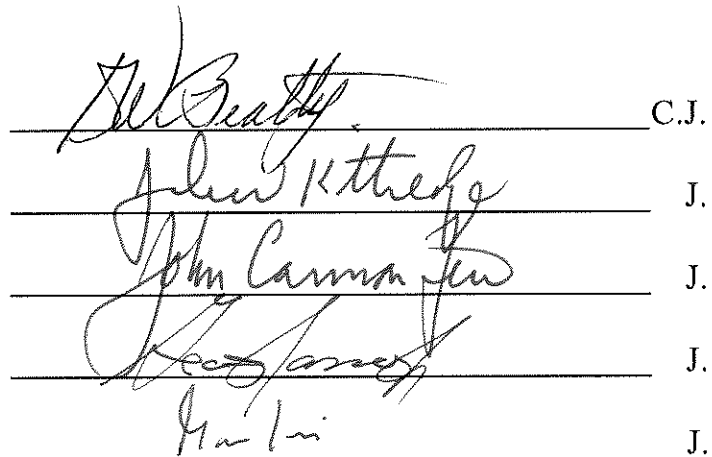 DW Beatty C.J.
John Kittredge J.
John Cannon Few J.
J.
J.